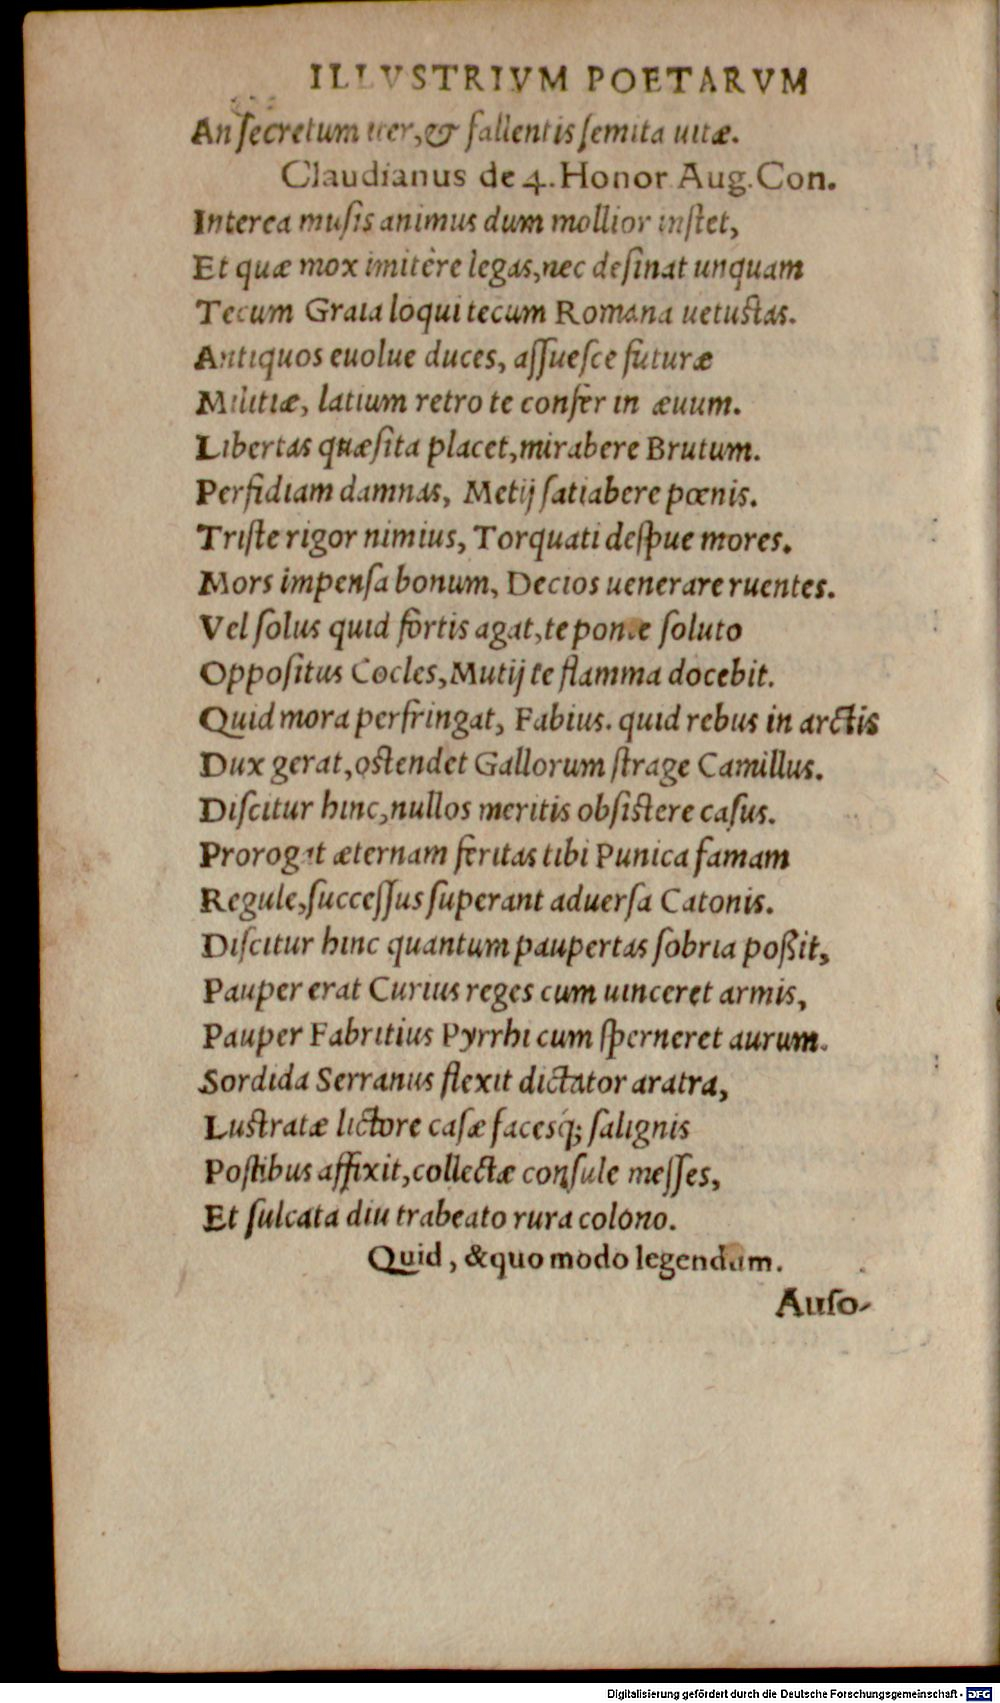 ILLVSTRIVM POETARVM
An secretum iter, & fallentis semita uitæ.
Claudianus de 4. Honor Aug. Con.
Interea musis animus dum mollior instet,
Et quæ mox imitère legas, nec desinat unquam
Tecum Graia loqui tecum Romana uetustas.
Antiquos euolue duces, assuesce futuræ
Militiæ, latium retro te confer in æuum.
Libertas quæsita placet, mirabere Brutum.
Perfidiam damnas, Metij satiabere pœnis.
Triste rigor nimius, Torquati despue mores.
Mors impensa bonum, Decios uenerare ruentes.
Vel solus quid fortis agat, te ponte soluto
Oppositus Cocles, Mutij te flamma docebit.
Quid mora perfringat, Fabius. quid rebus in arctis
Dux gerat, ostendet Gallorum strage Camillus.
Discitur hinc, nullos meritis obsistere casus.
Prorogat æternam feritas tibi Punica famam
Regule, successus superant aduersa Catonis.
Discitur hinc quantum paupertas sobria poßit,
Pauper erat Curius reges cum uinceret armis,
Pauper Fabritius Pyrrhi cum sperneret aurum.
Sordida Serranus flexit dictator aratra,
Lustratæ lictore casæ facesq́; salignis
Postibus affixit, collectæ consule messes,
Et sulcata diu trabeato rura colono.
Quid, & quo modo legendum.
Auso-
Digitalisierung gefördert durch die Deutsche Forschungsgemeinschaft - DFG